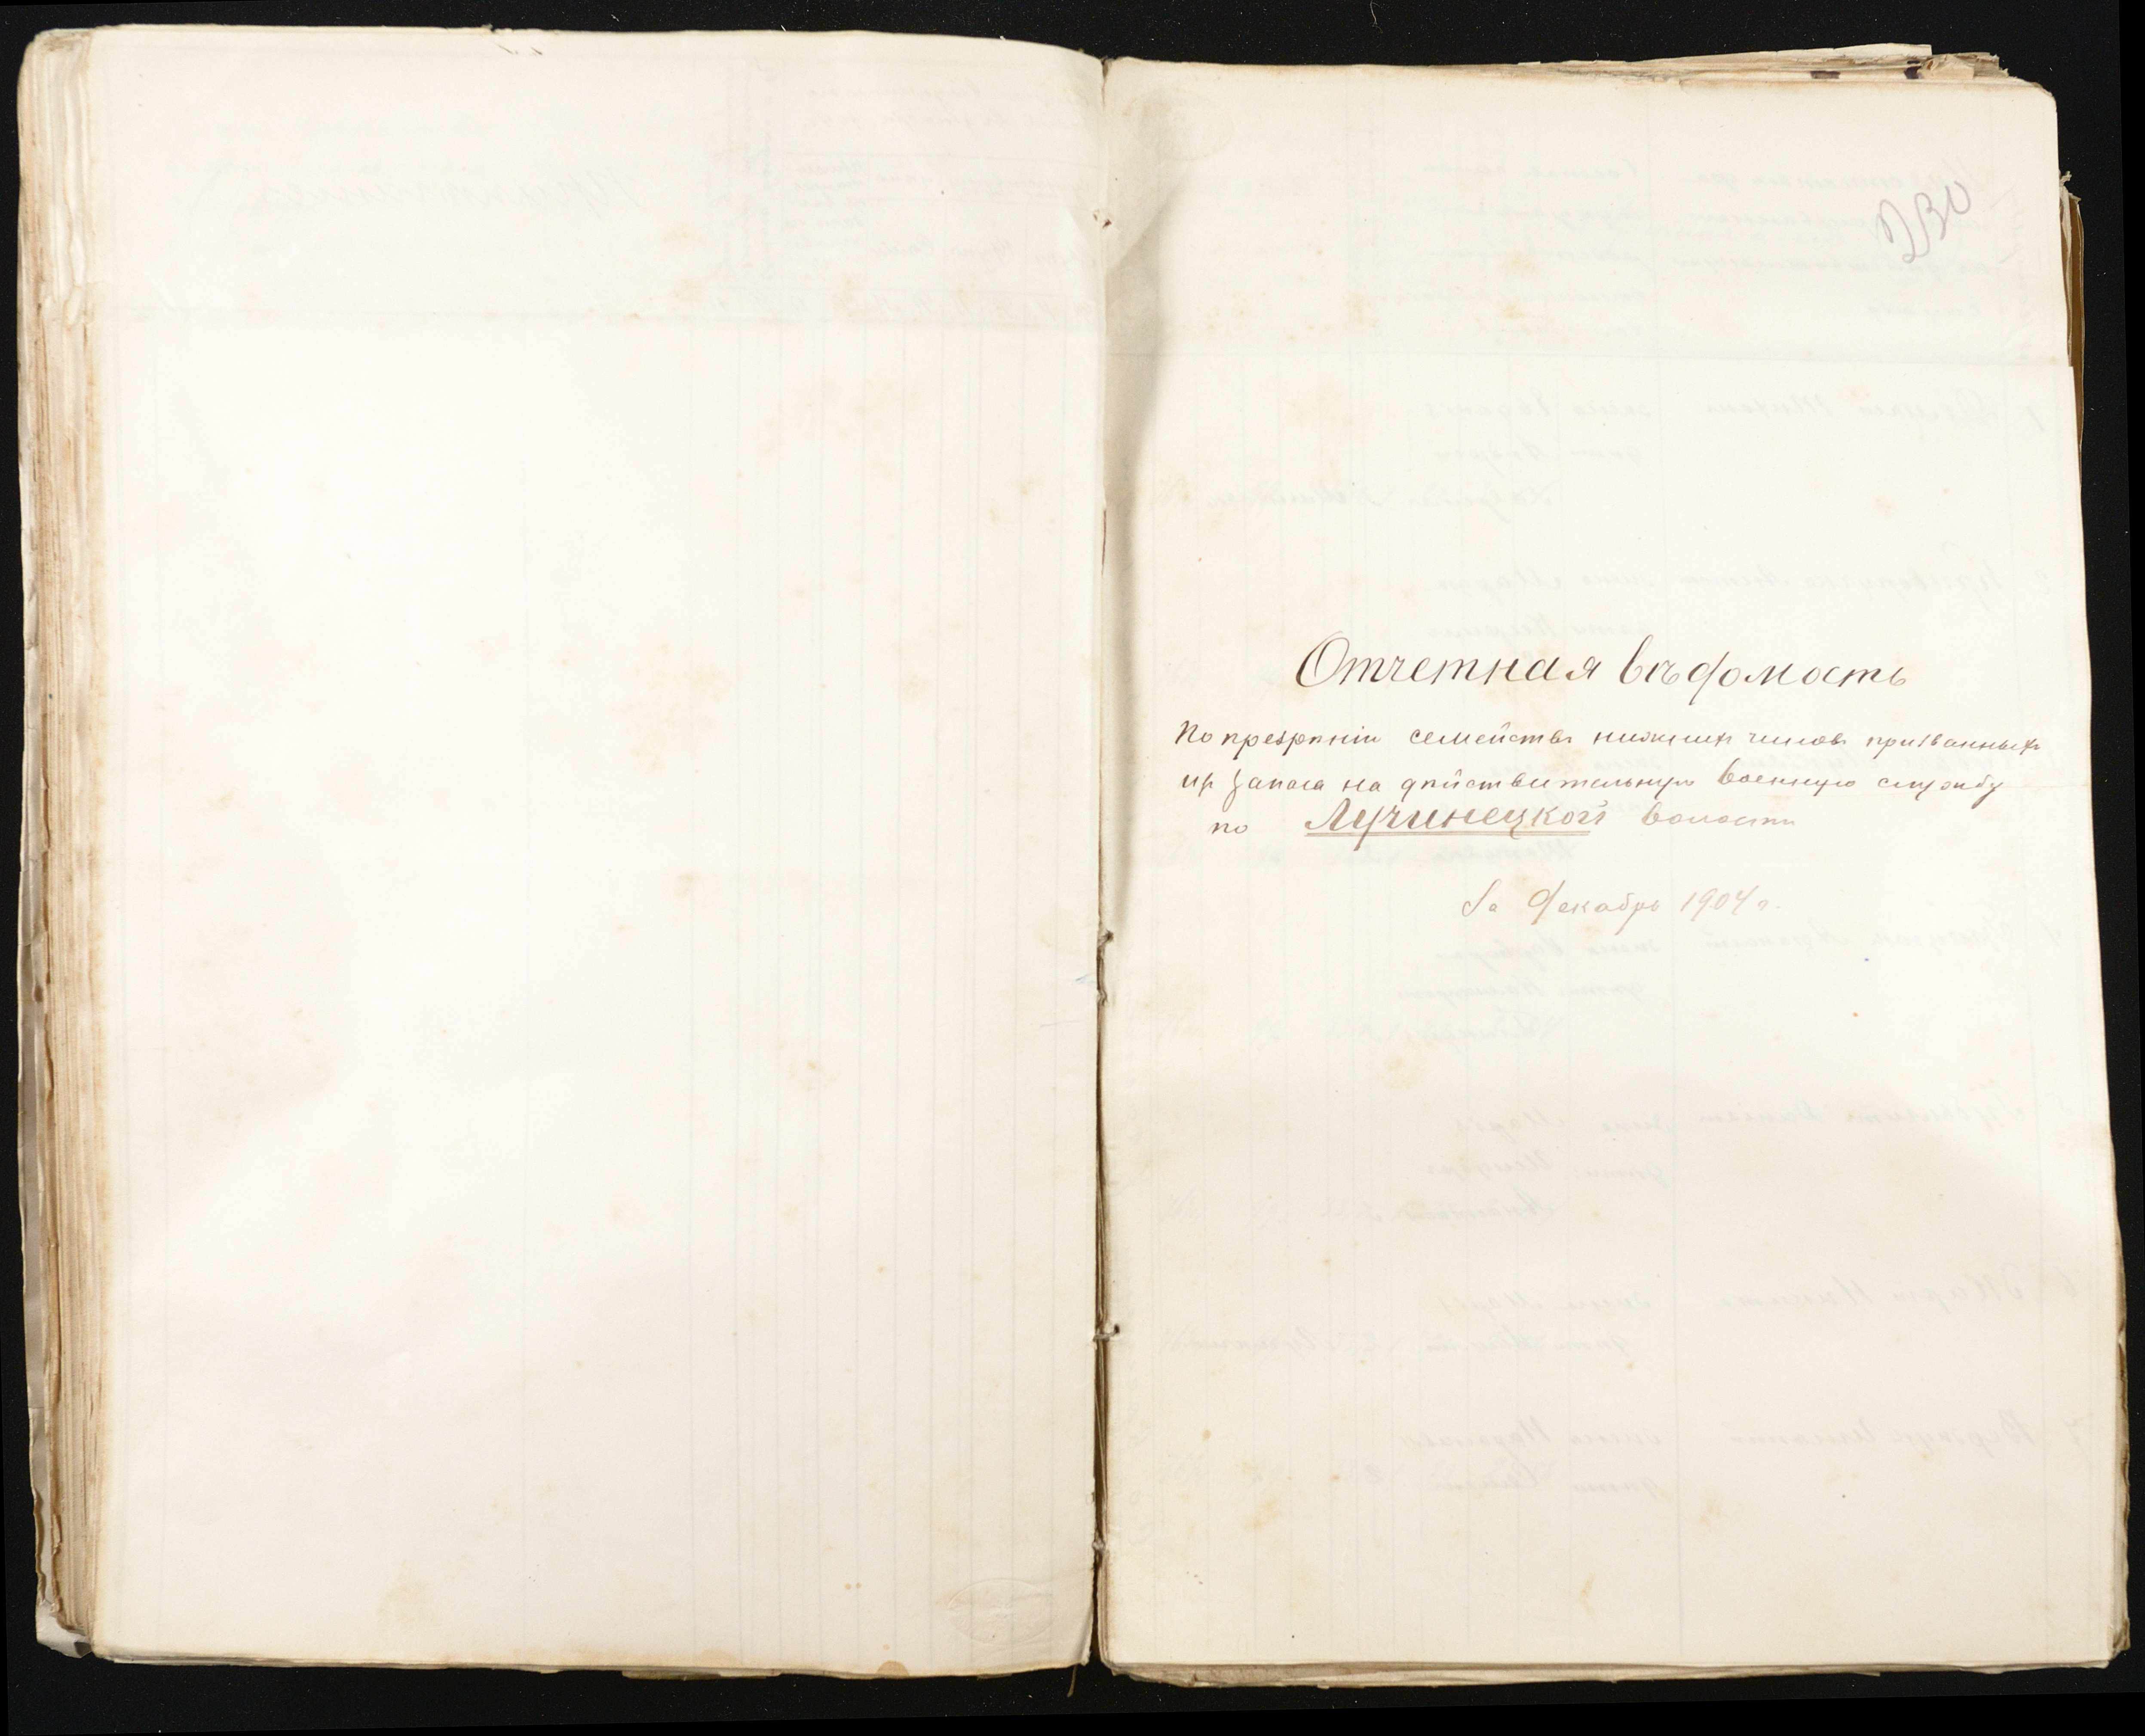 230
Отчетная вѣдомость
По презрѣнію семействъ нижнихъ чиновъ призванныхъ
изъ запаса на дѣйствительную военную службу
по Лучинецкой волости
За Декабрь 1904 г.